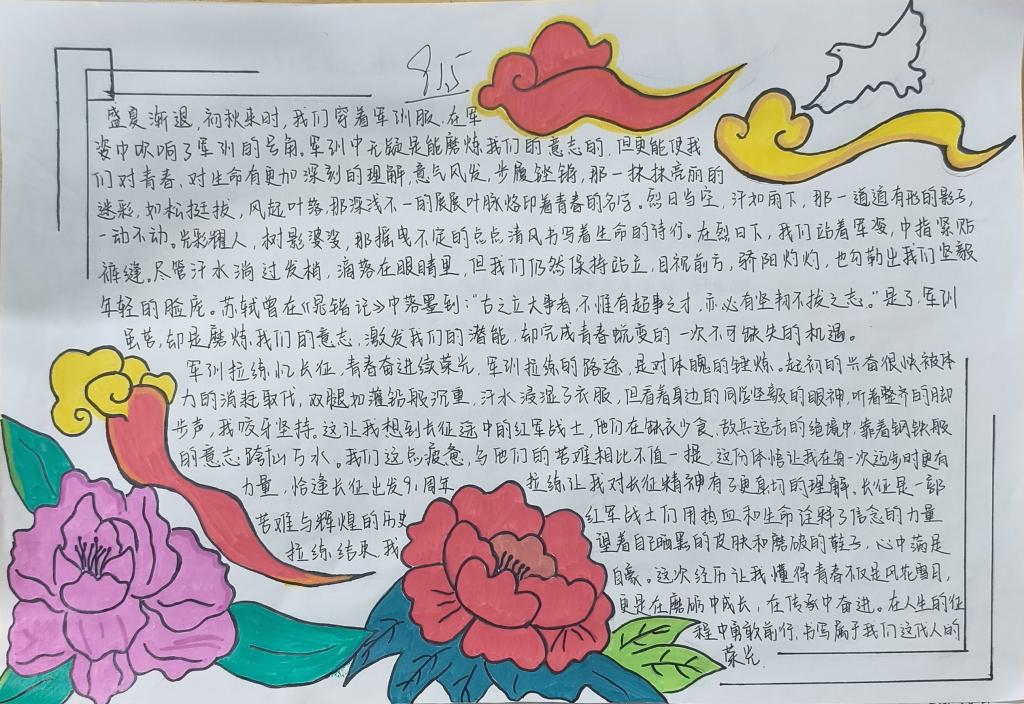 815
盛夏渐退,初秋来时,我们穿着军训服,在军
姿中吹响了军训的号角。军训中无疑是能磨炼我们的意志的,但更能使我
们对青春、对生命有更加深刻的理解,意气风发,步履铿锵,那一抹抹亮丽的
迷彩,如松挺拔,风起叶落,那深浅不一的展展叶脉烙印着青春的名字。烈日当空,汗如雨下,那一道道有形的影子,
一动不动。光彩耀人,树影婆娑,那摇曳不定的点点清风书写着生命的诗行。在烈日下,我们站着军姿,中指紧贴
裤缝。尽管汗水淌过发梢,滴落在眼睛里,但我们仍然保持站立,目视前方,骄阳灼灼,也勾勒出我们坚毅
年轻的脸庞。苏轼曾在《晁错论》中落墨到:“古之立大事者,不惟有超事之才,亦必有坚韧不拔之志。”是了,军训
虽苦,却是磨炼我们的意志,激发我们的潜能,却完成青春蜕变的一次不可缺失的机遇。
军训拉练忆长征,青春奋进续荣光,军训拉练的路途,是对体魄的锤炼。起初的兴奋很快被体
力的消耗取代,双腿如灌铅般沉重,汗水浸湿了衣服,但看着身边的同学坚毅的眼神,听着整齐的脚
步声,我咬牙坚持。这让我想到长征途中的红军战士,他们在缺衣少食、敌兵追击的绝境中,靠着钢铁般
的意志跨山万水。我们这点疲惫,与他们的苦难相比不值一提,这份体悟让我在每一次迈步时更有
力量,恰逢长征出发91周年 拉练让我对长征精神有了更真切的理解。长征是一部
苦难与辉煌的历史 红军战士们用热血和生命诠释了信念的力量
拉练结束我 望着自己晒黑的皮肤和磨破的鞋子,心中满是
自豪。这次经历让我懂得青春不仅是风花雪月,
更是在磨砺中成长,在传承中奋进。在人生的征
程中勇敢前行,书写属于我们这代人的
荣光.